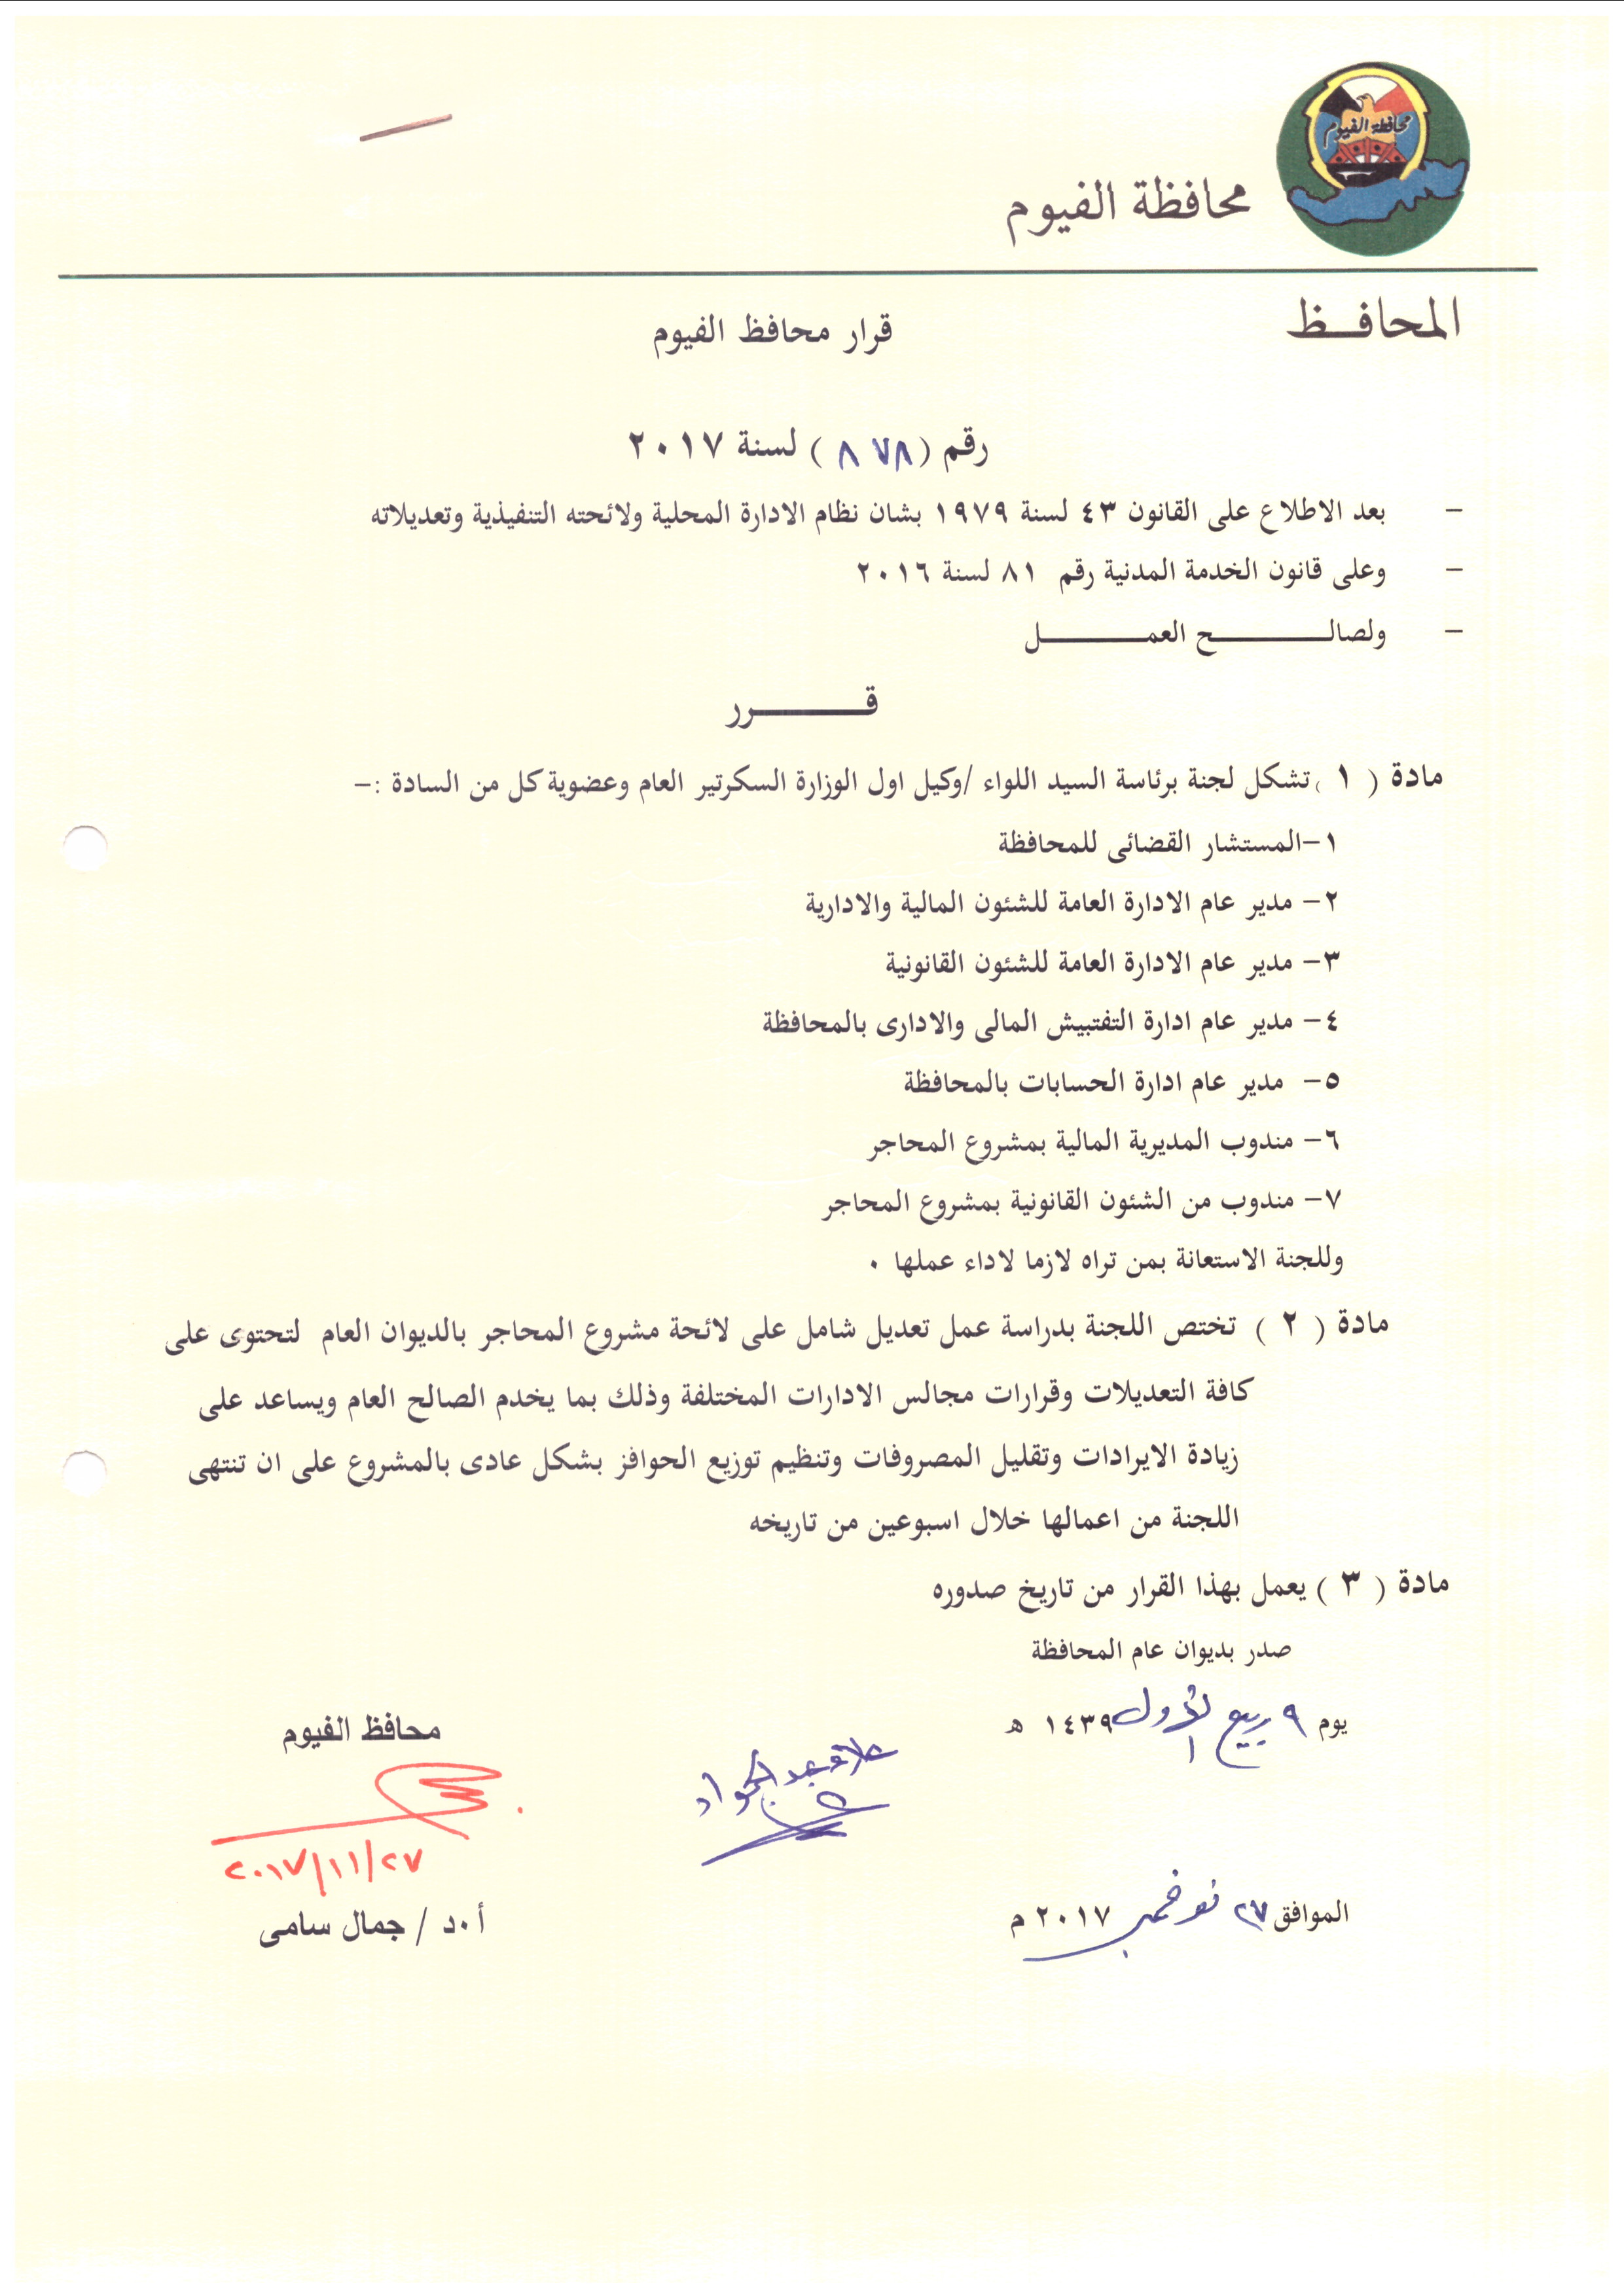 محافظة الفيوم
محافظة الفيوم
المحافـــظ
قرار محافظ الفيوم
رقم ( ٨٧٨ ) لسنة ٢٠١٧
- بعد الاطلاع على القانون ٤٣ لسنة ١٩٧٩ بشان نظام الادارة المحلية ولائحته التنفيذية وتعديلاته
- وعلى قانون الخدمة المدنية رقم ٨١ لسنة ٢٠١٦
- ولصالـــــــــح العمـــــــــل
قـــــــــرر
مادة ( ١ ) تشكل لجنة برئاسة السيد اللواء /وكيل اول الوزارة السكرتير العام وعضوية كل من السادة :-
١-المستشار القضائى للمحافظة
٢- مدير عام الادارة العامة للشئون المالية والادارية
٣- مدير عام الادارة العامة للشئون القانونية
٤- مدير عام ادارة التفتبيش المالى والادارى بالمحافظة
٥- مدير عام ادارة الحسابات بالمحافظة
٦- مندوب المديرية المالية بمشروع المحاجر
٧- مندوب من الشئون القانونية بمشروع المحاجر
وللجنة الاستعانة بمن تراه لازما لاداء عملها ٠
مادة ( ٢ ) تختص اللجنة بدراسة عمل تعديل شامل على لائحة مشروع المحاجر بالديوان العام لتحتوى على
كافة التعديلات وقرارات مجالس الادارات المختلفة وذلك بما يخدم الصالح العام ويساعد على
زيادة الايرادات وتقليل المصروفات وتنظيم توزيع الحوافز بشكل عادى بالمشروع على ان تنتهى
اللجنة من اعمالها خلال اسبوعين من تاريخه
مادة ( ٣ ) يعمل بهذا القرار من تاريخ صدوره
صدر بديوان عام المحافظة
يوم ٩ ربيع الأول ١٤٣٩ هـ
محافظ الفيوم
علاء عبد الجواد
٢٠١٧/١١/٢٧
الموافق ٢٧ نوفمبر ٢٠١٧ م
أ٠د / جمال سامى